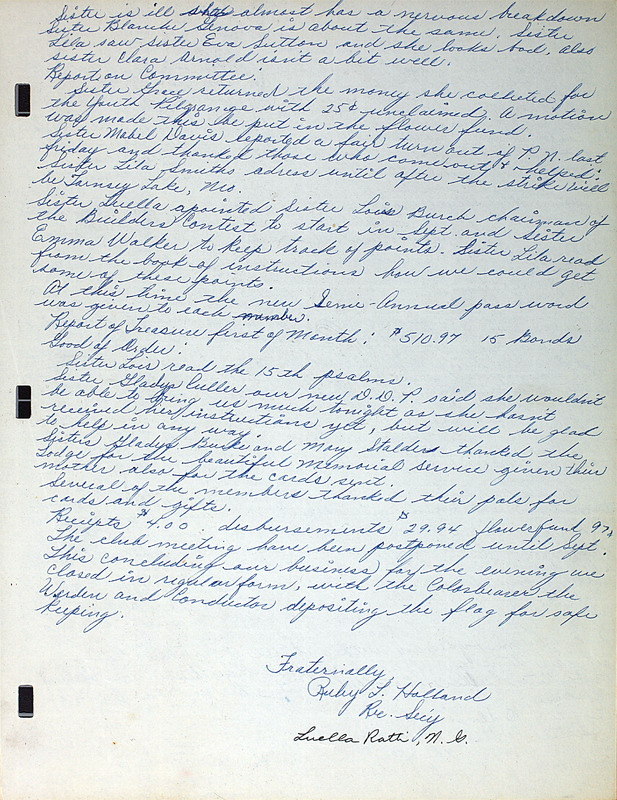 Sister is ill she almost has a nervous breakdown
Sister Blanche Genova is about the same. Sister
Lila saw sister Eva Sutton and she looks bad, also
sister Clara Arnold isn't a bit well.
Report on Committee.
Sister Grace returned the money she collected for
the Youth Pilgrange with 25¢ unclaimed. A motion
was made this be put in the flower fund.
Sister Mabel Davis reported a fair turn out of P. N. last
friday and thanked those who come out & helped.
Sister Lila Smiths adress until after the strike will
be Tarnsey Lake, Mo.
Sister Luella apointed Sister Lois Burch chairman of
the Builders Contest to start in Sept. and sister
Emma Walker to keep track of points. Sister Lila read
from the book of instructions how we could get
some of these points.
At this time the new Semi-Annual pass word
was given to each member.
Report of Treasure first of Month: $510.97 15 Bonds
Good of Order:
Sister Lois read the 15th psalms.
Sister Gladys Culler our new D.D.P. said she wouldn't
be able to bring us much tonight as she hasn't
received her instructions yet, but will be glad
to help in any way.
Sisters Gladys Burk and Mary Stalder thanked the
Lodge for the beautiful Memorial Service given their
mother also for the cards sent.
Several of the members thanked their pals for
cards and gifts.
Reciepts $4.00. disbursements $29.94 flowerfund 97¢
The club meeting have been postponed until Sept.
This concluding our business for the evening we
closed in regular form, with the Colorbearer the
Warden and Conductor depositing the flag for safe
keeping.
Fraternally,
Ruby L. Holland
Rec. Sec'y
Luella Rath, N. G.